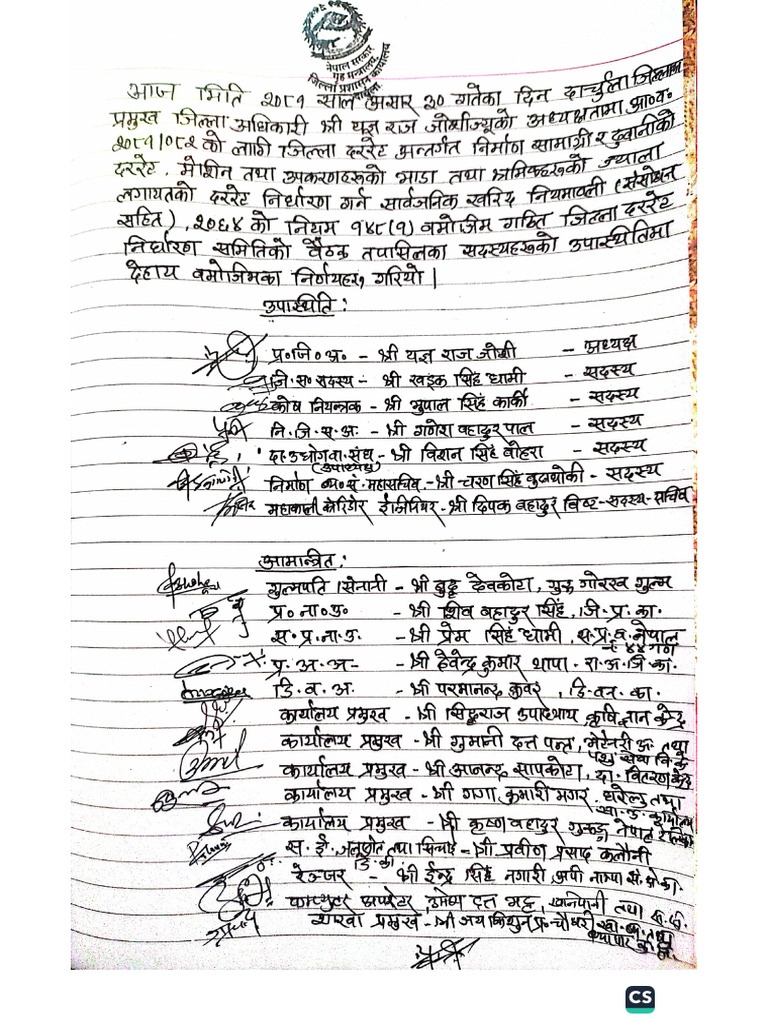 नेपाल सरकार
गृह मन्त्रालय
जिल्ला प्रशासन कार्यालय
दार्चुला
आज मिति २०८१ साल असार ३० गतेका दिन दार्चुला जिल्लाका
प्रमुख जिल्ला अधिकारी श्री यज्ञ राज जोशीज्यूको अध्यक्षतामा आ०व०
२०८१/०८२ को लागी जिल्ला दररेट अन्तर्गत निर्माण सामाग्री र ढुवानीको
दररेट, मेशिन तथा उपकरणहरुको भाडा तथा श्रमिकहरुको ज्याला
लगायतको दररेट निर्धारण गर्न सार्वजनिक खरिद नियमावली (संसोधन
सहित), २०६४ को नियम १४८(१) वमोजिम गठित जिल्ला दररेट
निर्धारण समितिको वैठक तपासिलका सदस्यहरुको उपास्थितिमा
देहाय वमोजिमका निर्णयहरु गरियो |
उपास्थिति :
प्र०जि०अ० - श्री यज्ञ राज जोशी - अध्यक्ष
जि.स. सदस्य - श्री खड्क सिंह धामी - सदस्य
कोष नियन्त्रक - श्री भुपाल सिंह कार्की - सदस्य
नि.जि.स.अ. - श्री गणेश वहादुर पाल - सदस्य
दा.उधोगवा.संघ - श्री विशन सिंह वोहरा - सदस्य
(उपाध्यक्ष)
निर्माण व्य.सं.महासचिव - श्री चरण सिंह वुढाथोकी - सदस्य
महाकाली कोरिडोर ईन्जिनियर - श्री दिपक वहादुर विष्ट - सदस्य-सचिव
आमान्त्रित :
गुल्मपति/सेनानी - श्री वुद्ध देवकोटा, गुरु गोरख गुल्म
प्र०ना०उ० - श्री शिव वहादुर सिंह, जि.प्र.का.
स.प्र.ना.उ. - श्री प्रेम सिंह धामी, स.प्र.व.नेपाल
नं ४४ गण
प्र.अ.अ. - श्री देवेन्द्र कुमार थापा - रा.अ.जि.का.
डि.व.अ. - श्री परमानन्द कुवर, डि.वन.का.
कार्यालय प्रमुख - श्री सिद्धराज उपाध्याय, कृषि ज्ञान केन्द्र
कार्यालय प्रमुख - श्री गुमानी दत्त पन्त, भेटेनरी अ. तथा
पशु सेवा वि.के.
कार्यालय प्रमुख - श्री आनन्द सापकोटा, दा. वितरण केन्द्र
कार्यालय प्रमुख - श्री गंगा कुमारी मगर, घरेलु तथा
कार्यालय
कार्यालय प्रमुख - श्री कृष्ण वहादुर नेपाल
स.ई. जलश्रोत तथा सिचाई - श्री प्रवीण प्रसाद कलौनी
डि.का.
रेञ्जर - श्री ईन्द्र सिंह नगारी, अपी नाम्पा सं.क्षे.का.
कम्प्युटर अपरेटर, उमेश दत्त भट्ट, खानेपानी तथा
शाखा प्रमुख - श्री जय किशुन प्र. चौधरी
CS